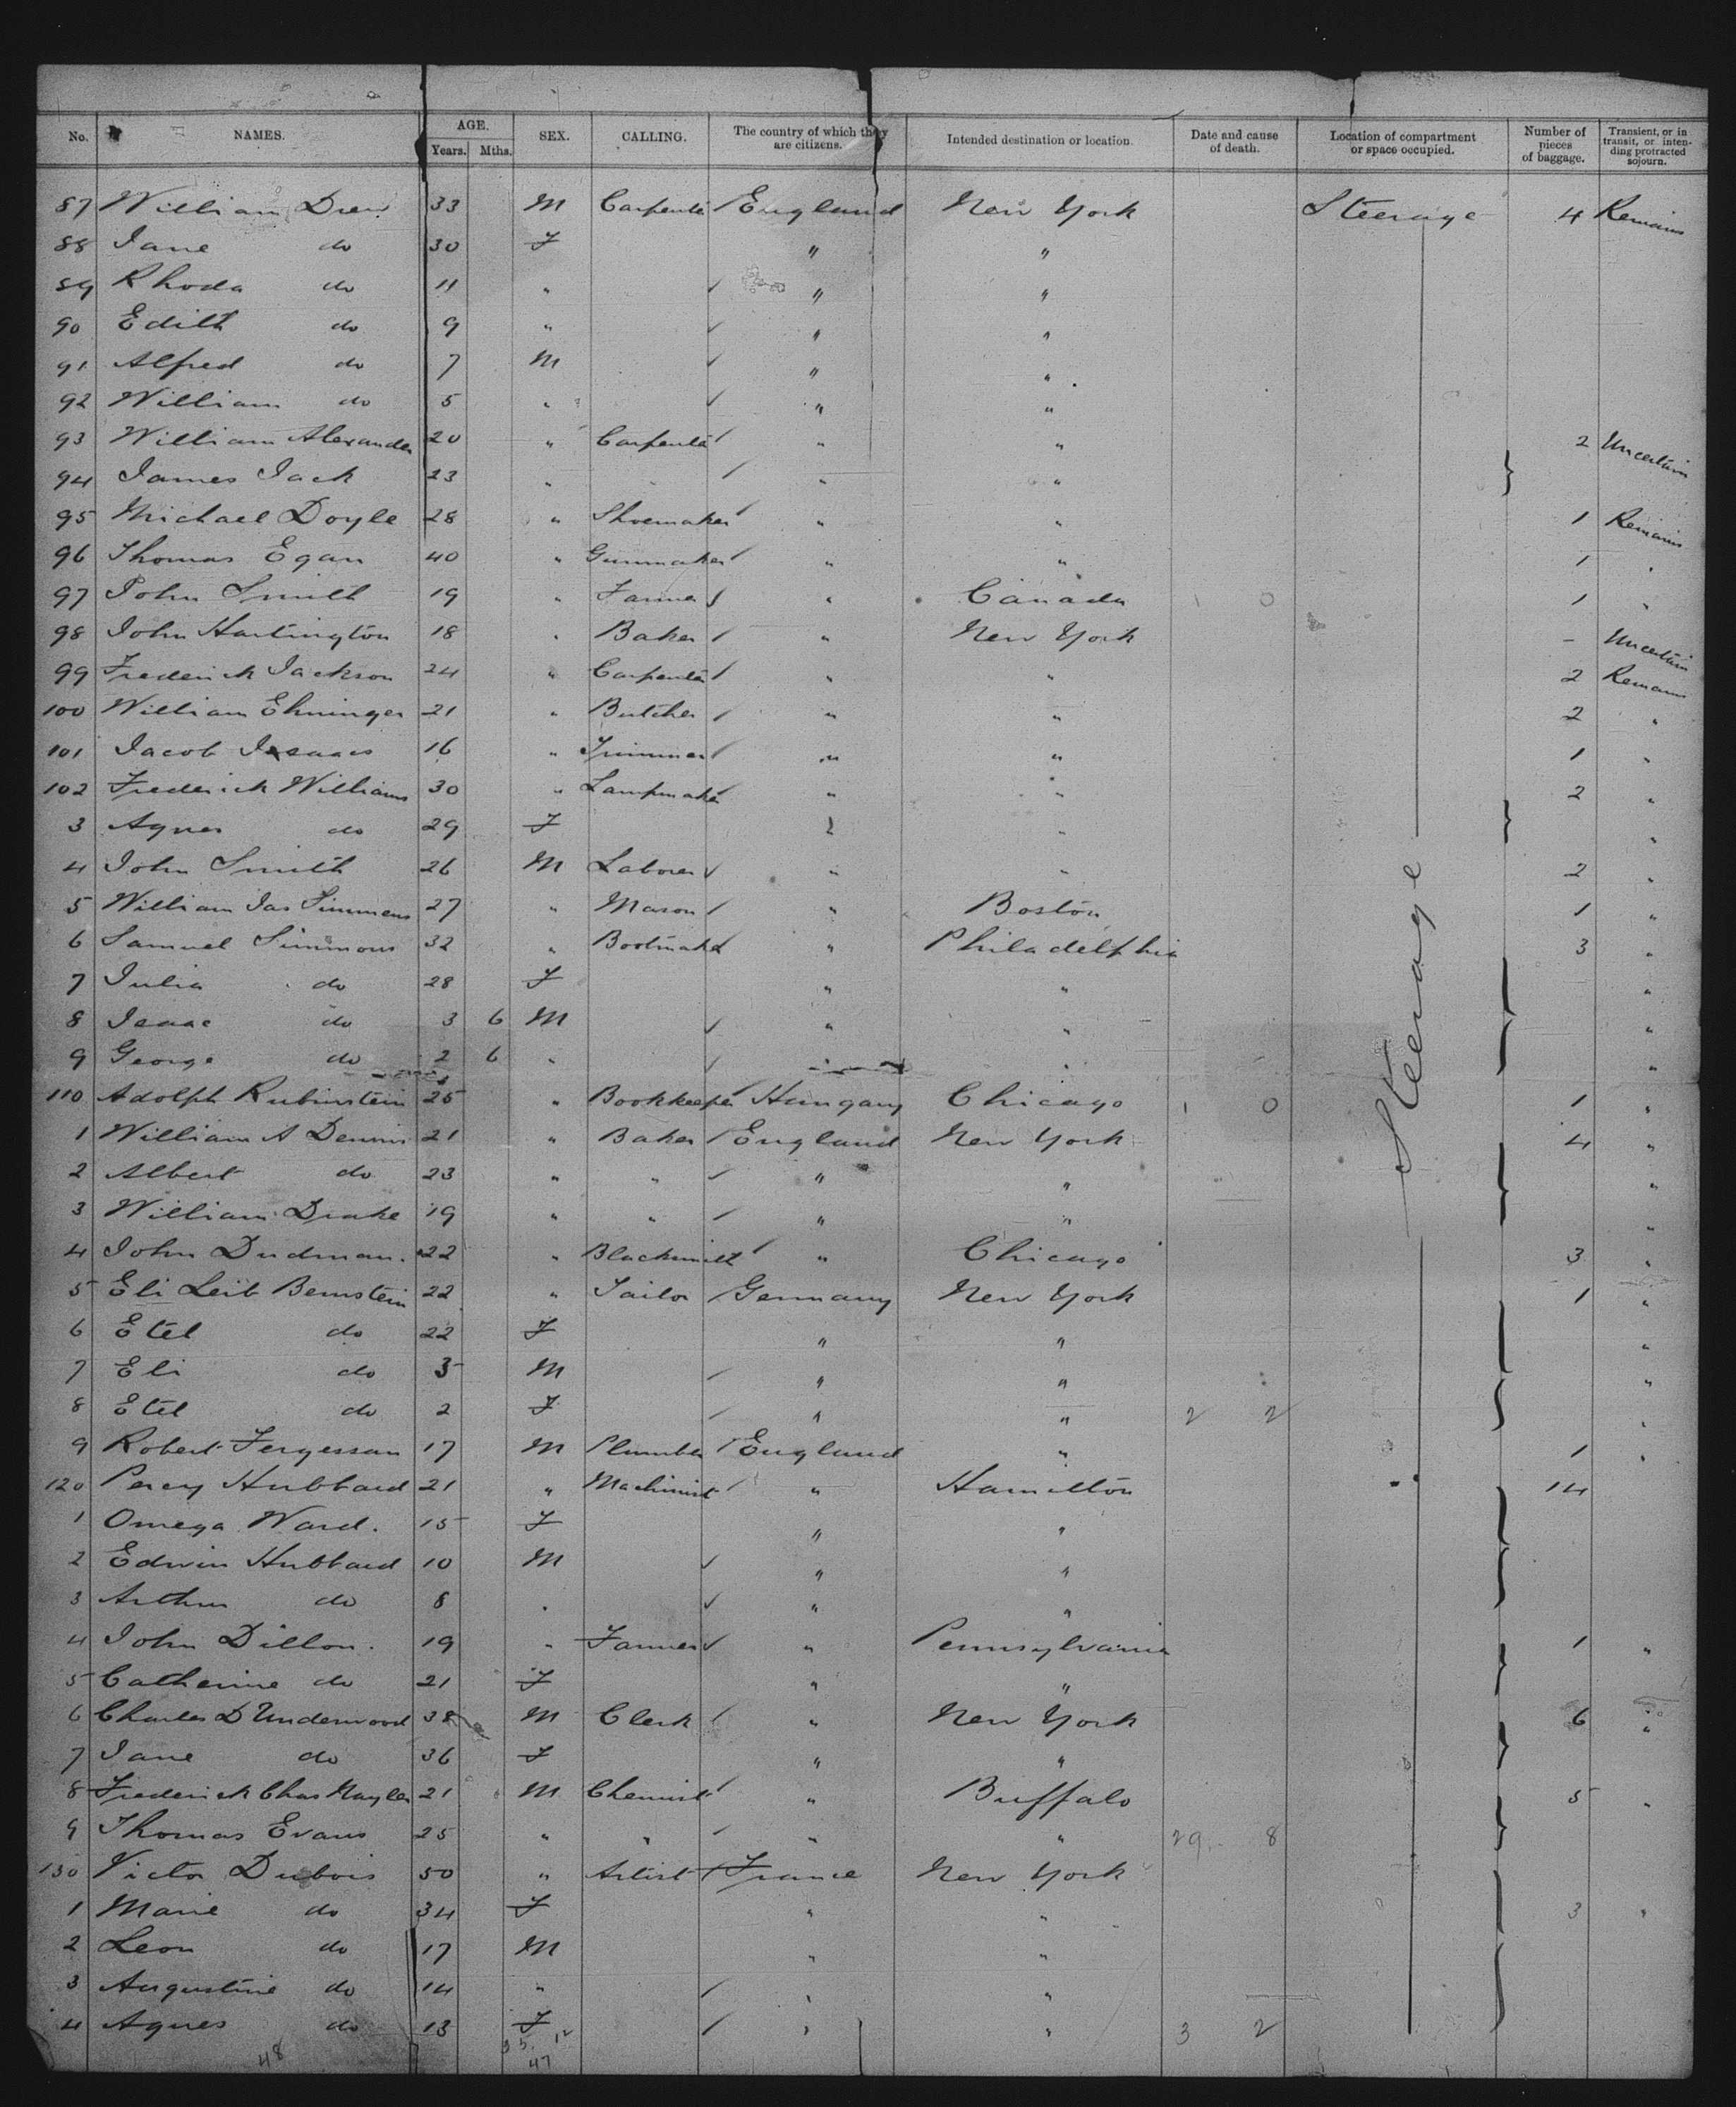 No. NAMES. AGE. Years. Mths. SEX. CALLING. The country of which they are citizens. Intended destination or location. Date and cause of death. Location of compartment or space occupied. Number of pieces of baggage. Transient, or in transit, or intending protracted sojourn.
87 William Drew 33 M Carpenter England New York Steerage 4 Remains
88 Jane do 30 F " "
89 Rhoda do 11 " " "
90 Edith do 9 " " "
91 Alfred do 7 M " "
92 William do 5 " " "
93 William Alexander 20 " Carpenter " " 2 Uncertain
94 James Jack 23 " " " "
95 Michael Doyle 28 " Shoemaker " " 1 Remains
96 Thomas Egan 40 " Gunmaker " " 1 "
97 John Smith 19 " Farmer " Canada 1 0 1 "
98 John Hartington 18 " Baker " New York - Uncertain
99 Frederick Jackson 24 " Carpenter " " 2 Remains
100 William Ehninger 21 " Butcher " " 2 "
101 Jacob Isaacs 16 " Trimmer " " 1 "
102 Frederick Williams 30 " Lampmaker " " 2 "
3 Agnes do 29 F " " "
4 John Smith 26 M Laborer " " 2 "
5 William Jas Simmens 27 " Mason " Boston 1 "
6 Samuel Simmons 32 " Bootmaker " Philadelphia 3 "
7 Julia do 28 F " " "
8 Isaac do 3 6 M " " "
9 George do 2 6 " " " "
Steerage
110 Adolph Rubinstein 25 " Bookkeeper Hungary Chicago 1 0 1 "
1 William A Dennis 21 " Baker England New York 4 "
2 Albert do 23 " " " " "
3 William Drake 19 " " " " "
4 John Dudman. 22 " Blacksmith " Chicago 3 "
5 Eli Leib Bernstein 22 " Tailor Germany New York 1 "
6 Etel do 22 F " " "
7 Eli do 3 M " " "
8 Etel do 2 F " " 2 2 "
9 Robert Fergesson 17 M Plumber England " 1 "
120 Percy Hubbard 21 " Machinist " Hamilton 14
1 Omega Ward. 15 F " "
2 Edwin Hubbard 10 M " "
3 Arthur do 8 " " "
4 John Dillon. 19 " Farmer " Pennsylvania 1 "
5 Catherine do 21 F " "
6 Charles D Underwood 38 M Clerk " New York 6 "
7 Jane do 36 F " "
8 Frederick Chas Nayler 21 M Chemist " Buffalo 5 "
9 Thomas Evans 25 " " " " 29 8
130 Victor Dubois 50 " Artist France New York
1 Marie do 34 F " " 3 "
2 Leon do 17 M " "
3 Augustine do 14 " " "
4 Agnes do 13 F " " 3 2
35 12
48 47